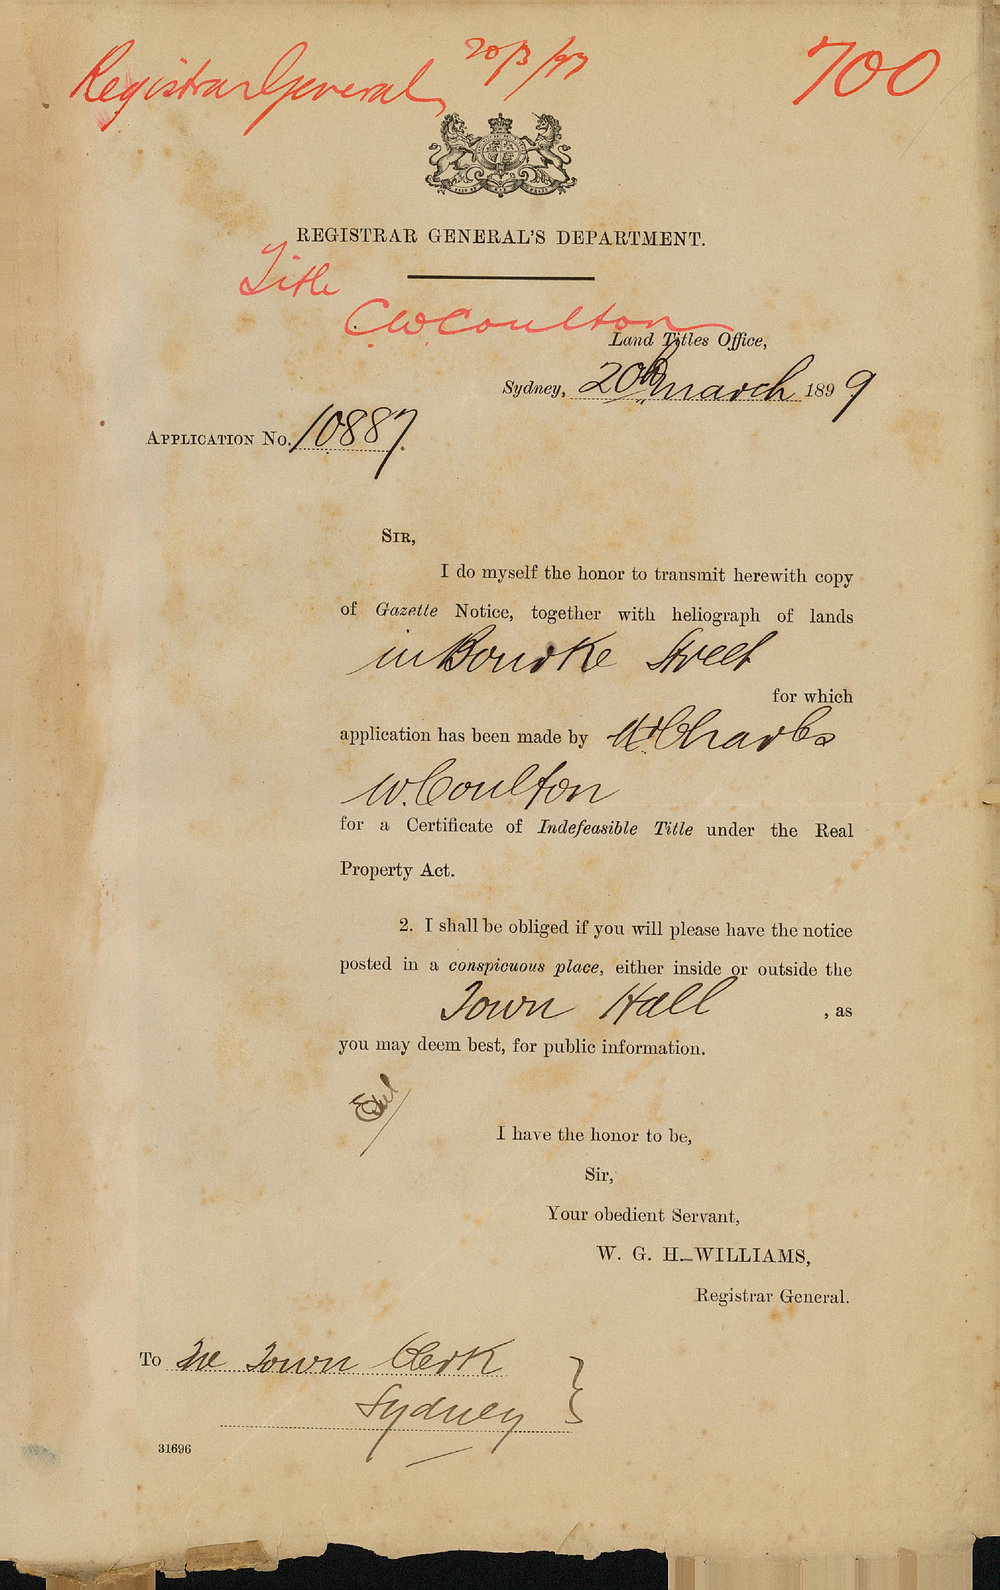 Registrar General 20/3/99
700
REGISTRAR GENERAL'S DEPARTMENT.
Title
C W Coulton
Land Titles Office,
Sydney, 20th March 1899
APPLICATION No. 10887.
SIR,
I do myself the honor to transmit herewith copy
of Gazette Notice, together with heliograph of lands
in Bourke Street
for which
application has been made by Mr Charles
W. Coulton
for a Certificate of Indefeasible Title under the Real
Property Act.
2. I shall be obliged if you will please have the notice
posted in a conspicuous place, either inside or outside the
Town Hall , as
you may deem best, for public information.
I have the honor to be,
Sir,
Your obedient Servant,
W. G. H-WILLIAMS,
Registrar General.
To The Town Clerk
Sydney
31696